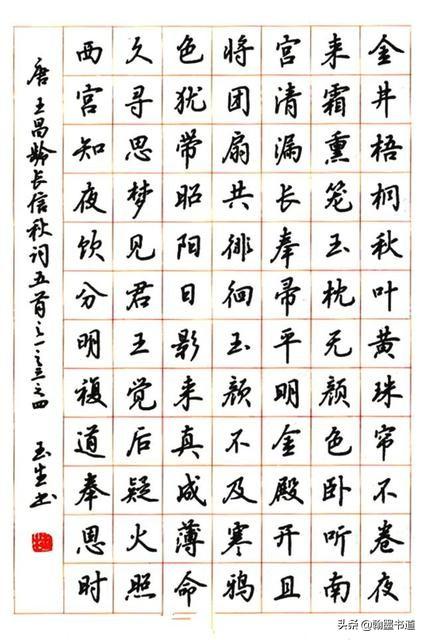 金井梧桐秋叶黄珠帘不卷夜
来霜熏笼玉枕无颜色卧听南
宫清漏长奉帚平明金殿开且
将团扇共徘徊玉颜不及寒鸦
色犹带昭阳日影来真成薄命
久寻思梦见君王觉后疑火照
西宫知夜饮分明複道奉恩时
唐王昌龄长信秋词五首之一之三之四 玉生书
头条 @翰墨书道